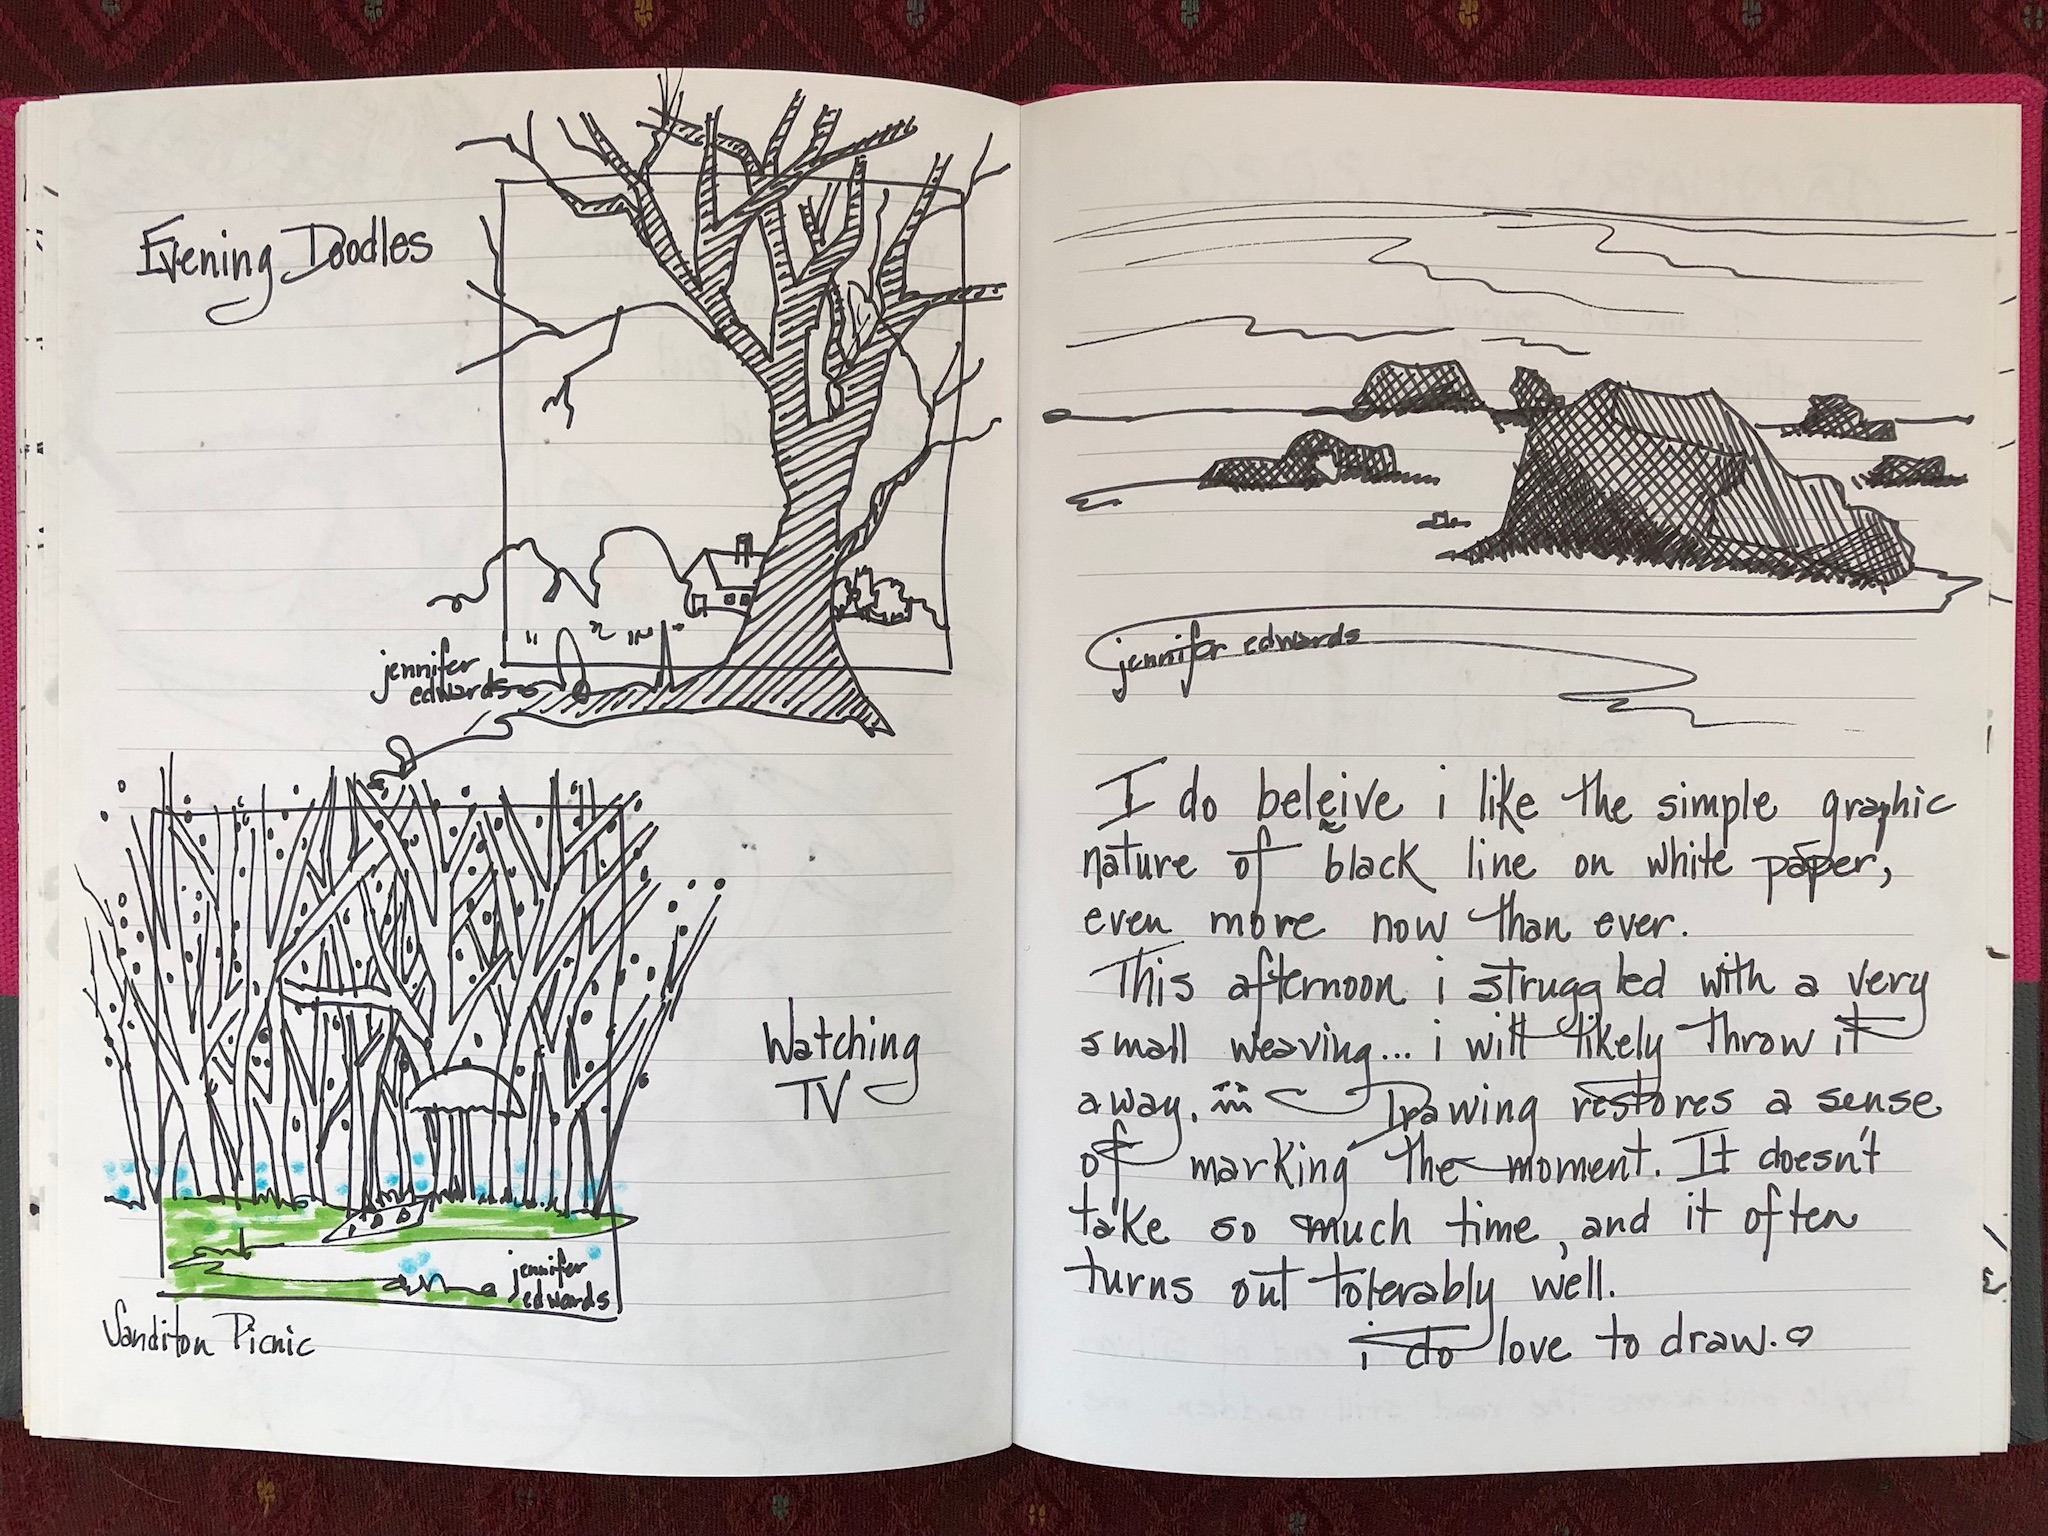 Evening Doodles
jennifer
edwards
Watching
TV
jennifer
edwards
Sanditon Picnic
jennifer edwards
I do beleive i like the simple graphic
nature of black line on white paper,
even more now than ever.
This afternoon i struggled with a very
small weaving... i will likely throw it
away. Drawing restores a sense
of marking the moment. It doesn't
take so much time, and it often
turns out tolerably well.
i do love to draw. ♡